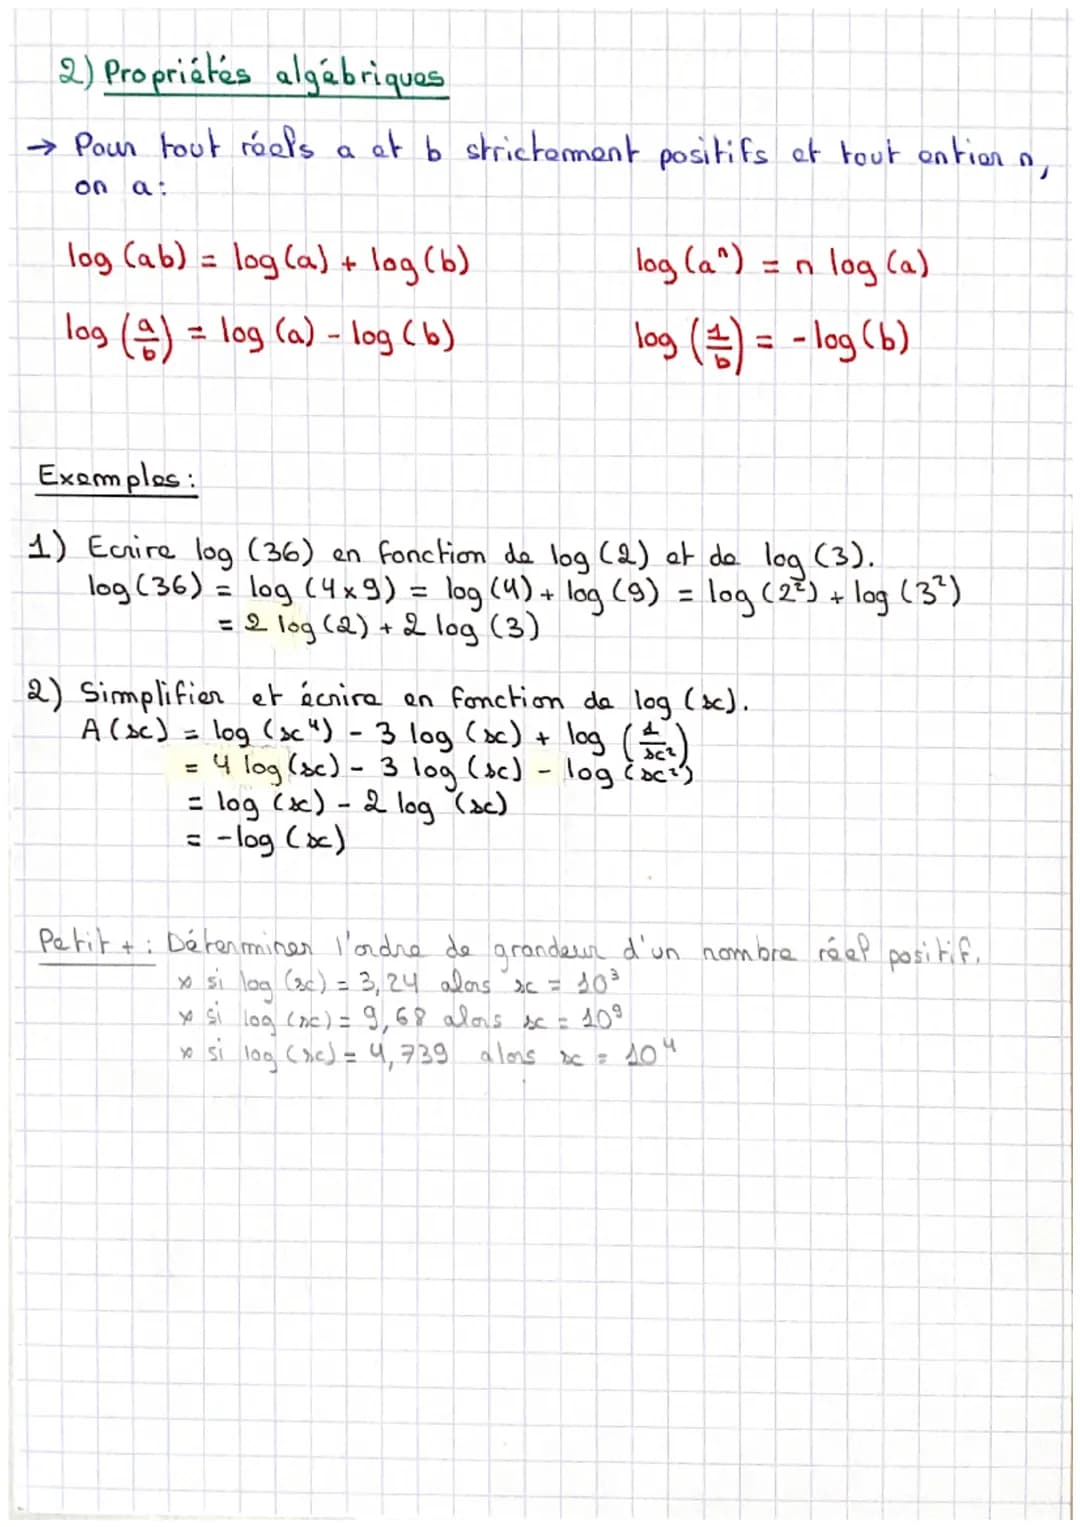 2) Propriétés algébriques
→ Pour tout réels a et b strictement positifs et tout entier n,
on a :
log (ab) = log (a) + log (b)    log (aⁿ) = n log (a)
log (a/b) = log (a) - log (b)    log (1/b) = - log (b)
Exemples :
1) Ecrire log (36) en fonction de log (2) et de log (3).
log (36) = log (4 x 9) = log (4) + log (9) = log (2²) + log (3²)
= 2 log (2) + 2 log (3)
2) Simplifier et écrire en fonction de log (x).
A (x) = log (x⁴) - 3 log (x) + log (1/x²)
= 4 log (x) - 3 log (x) - log (x²)
= log (x) - 2 log (x)
= - log (x)
Petit + : Déterminer l'ordre de grandeur d'un nombre réel positif.
x si log (x) = 3,24 alors x = 10³
x si log (x) = 9,68 alors x = 10⁹
x si log (x) = 4,739 alors x = 10⁴